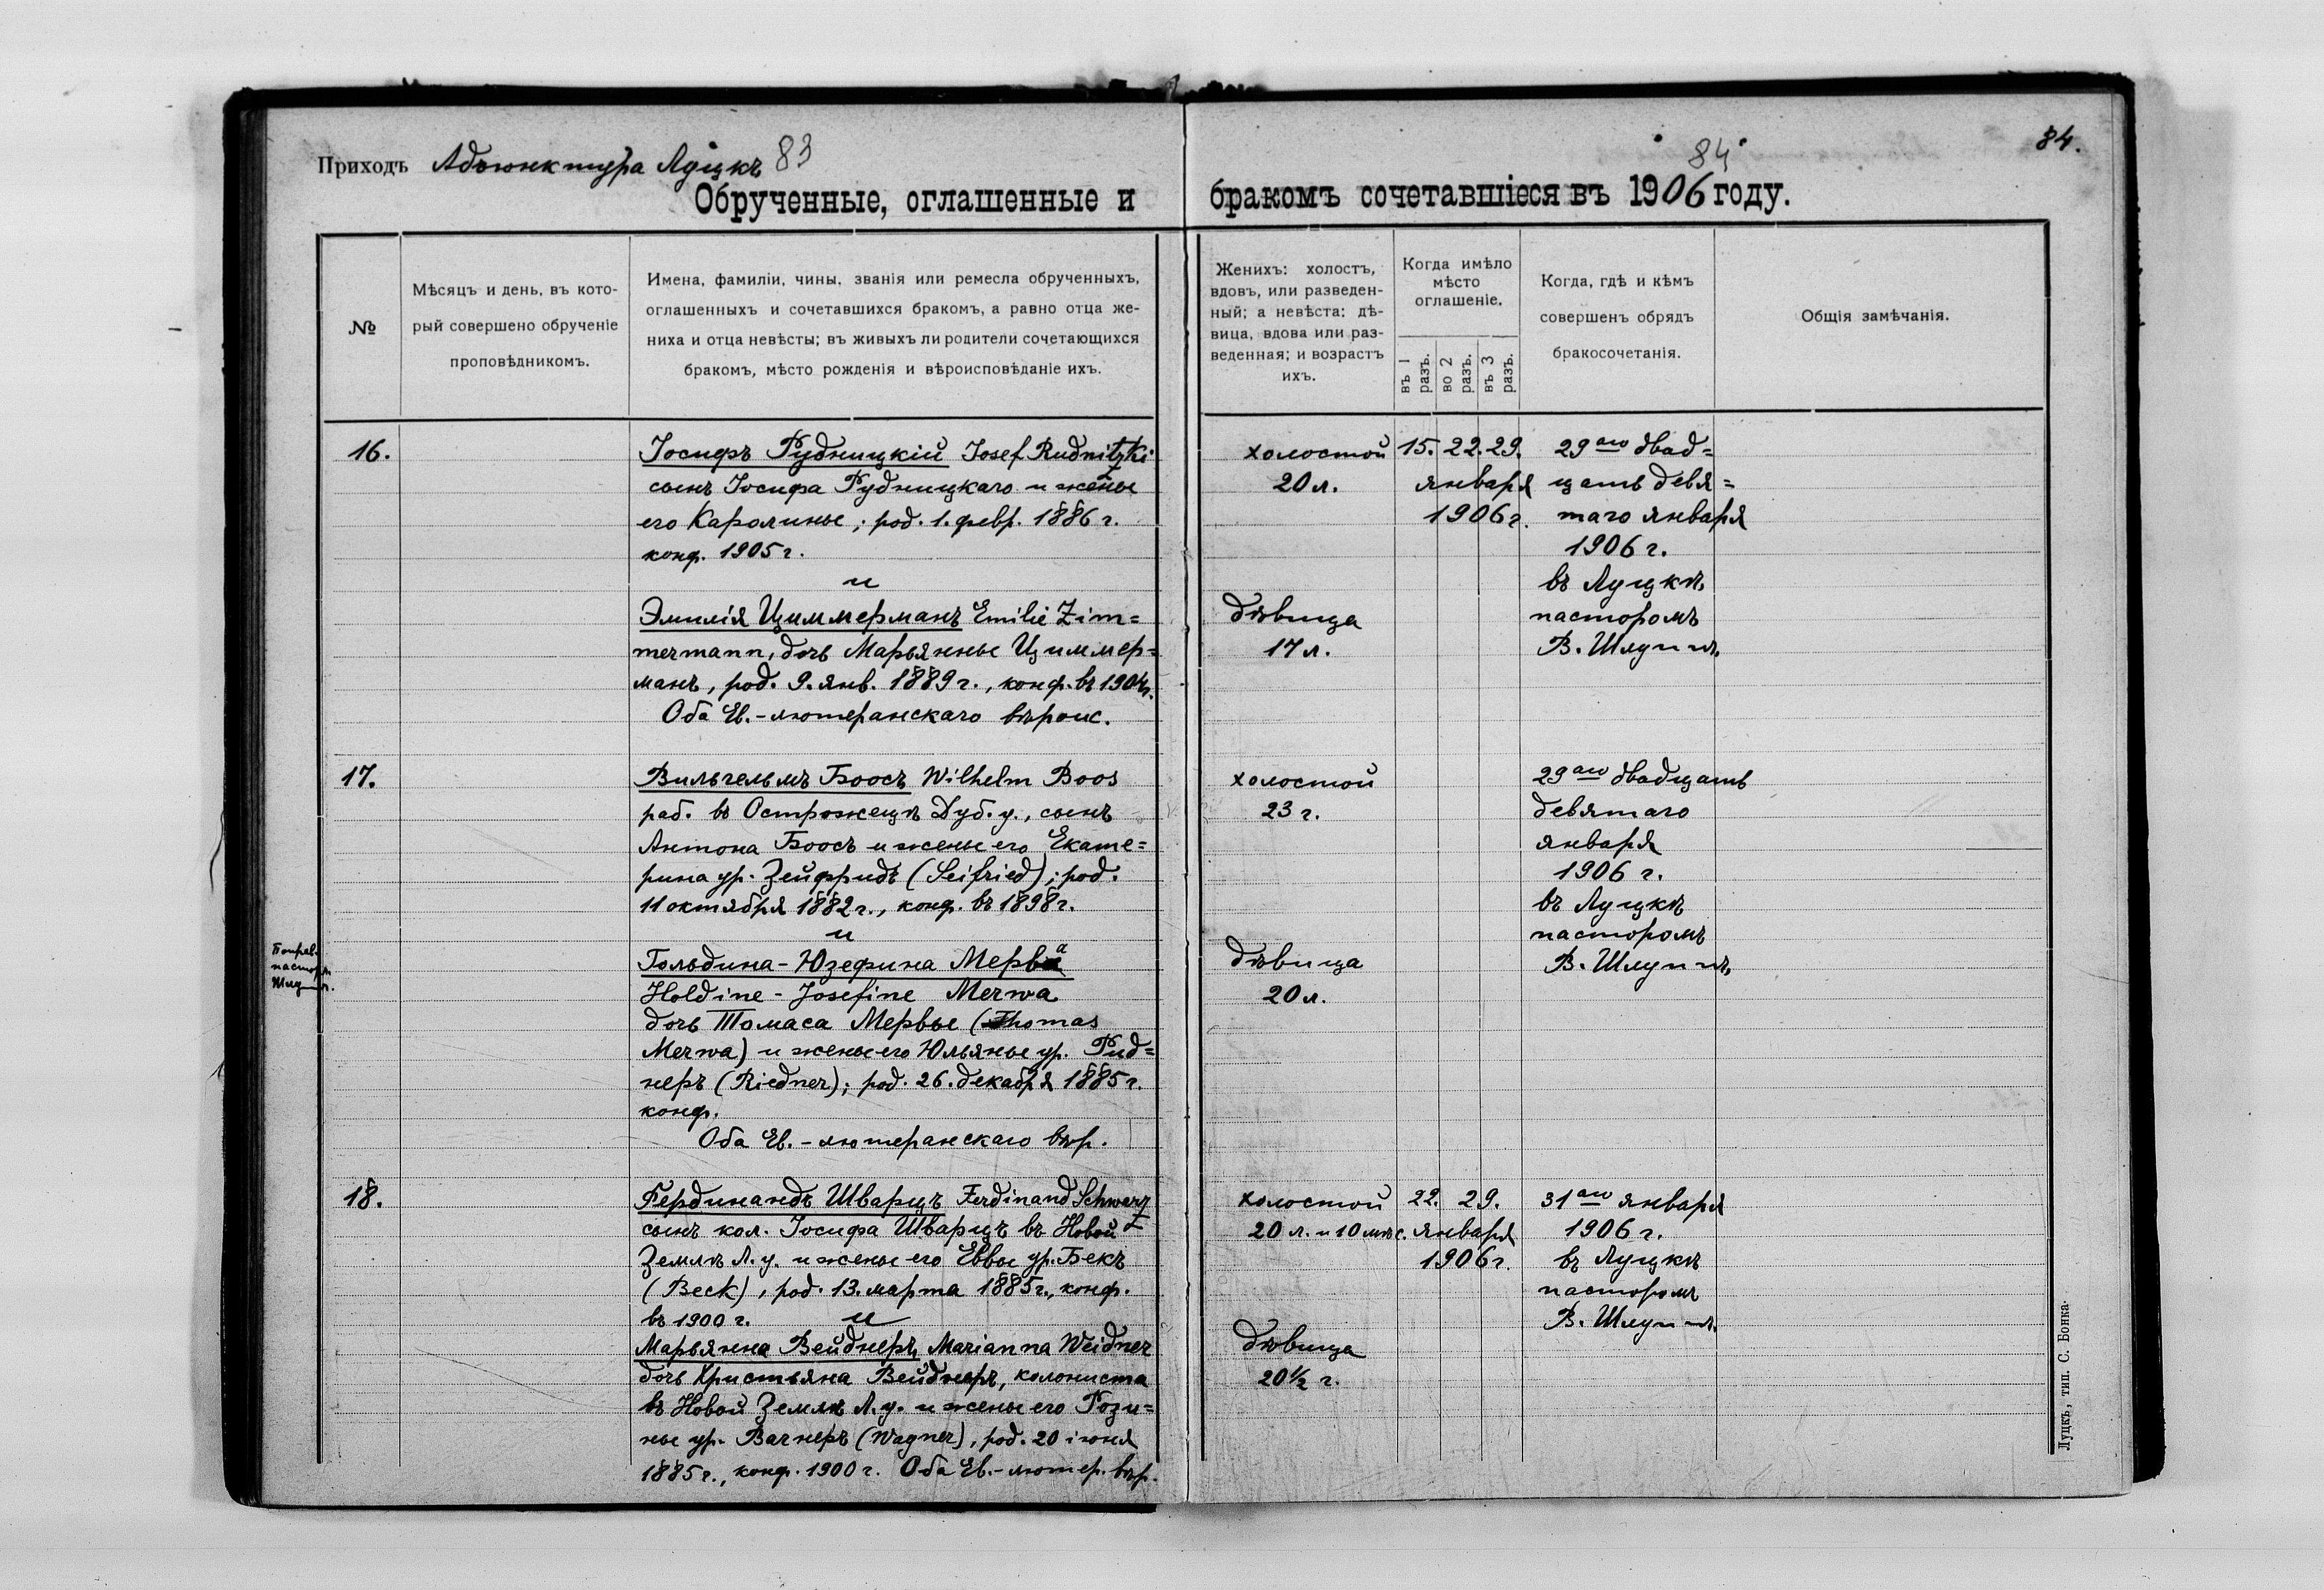 Приходъ Адъюнктура Луцкъ 83
Обрученные, оглашенные и
№
Мѣсяцъ и день, въ кото-
рый совершено обрученіе
проповѣдникомъ.
Имена, фамиліи, чины, званія или ремесла обрученныхъ,
оглашенныхъ и сочетавшихся бракомъ, а равно отца же-
ниха и отца невѣсты; въ живыхъ ли родители сочетающихся
бракомъ, мѣсто рожденія и вѣроисповѣданіе ихъ.
16.
Іосифъ Рудницкій Josef Rudnitzki
сынъ Іосифа Рудницкаго и жены
его Каролины; род. 1. февр. 1886 г.
конф. 1905 г.
и
Эмилія Циммерманъ Emilie Zim=
mermann, дочь Марьянны Циммер=
манъ, род. 9. янв. 1889 г., конф. въ 1904 г.
Оба Ев.-лютеранскаго вѣроис.
17.
Вильгельмъ Боосъ Wilhelm Boos
раб. въ Острожецѣ Дуб. у., сынъ
Антона Боосъ и жены его Екате=
рина ур. Зейфридъ (Seifried); род.
11 октября 1882 г., конф. въ 1898 г.
и
Поправ.
пасторъ
Гольдина-Юзефина Мерва
Holdine-Josefine Merwa
дочь Томаса Мервы (Thomas
Merwa) и жены его Юльяны ур. Рид=
неръ (Riedner); род. 26. декабря 1885 г.
конф.
Оба Ев.-лютеранскаго вѣр.
18.
Фердинандъ Шварцъ Ferdinand Schwarz
сынъ кол. Іосифа Шварцъ въ Новой
Землѣ Л. у. и жены его Еввы ур. Бекъ
(Beck), род. 13. марта 1885 г., конф.
въ 1900 г. и
Марьянна Вейднеръ Marianna Weidner
дочь Христьяна Вейднеръ, колониста
въ Новой Землѣ Л. у. и жены его Рози=
ны ур. Вагнеръ (Wagner), род. 20 іюня
1885 г., конф. 1900 г. Оба Ев.-лютер. вѣр.
84
84.
бракомъ сочетавшіеся въ 1906 году.
Женихъ: холостъ,
вдовъ, или разведен-
ный; а невѣста: дѣ-
вица, вдова или раз-
веденная; и возрастъ
ихъ.
Когда имѣло
мѣсто
оглашеніе.
въ 1 разъ.
во 2 разъ.
въ 3 разъ.
Когда, гдѣ и кѣмъ
совершенъ обрядъ
бракосочетанія.
Общія замѣчанія.
холостой 15. 22. 29. 29аго двад=
20 л. января цать девя=
1906 г. таго января
1906 г.
въ Луцкѣ
дѣвица пасторомъ
17 л. В. Шлуппъ
холостой 29аго двадцать
23 г. девятаго
января
1906 г.
въ Луцкѣ
пасторомъ
дѣвица В. Шлуппъ
20 л.
холостой 22. 29. 31аго января
20 л. и 10 мѣс. января 1906 г.
1906 г. въ Луцкѣ
пасторомъ
В. Шлуппъ
дѣвица
20½ г.
Луцкъ, тип. С. Бонка.